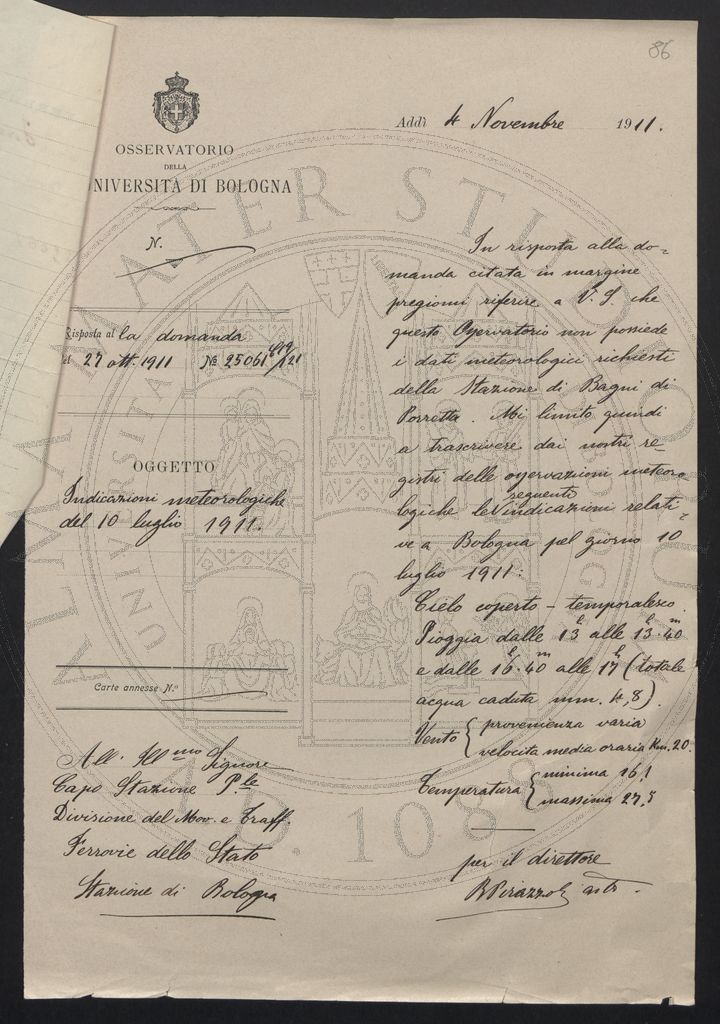 86
Addì 4 Novembre 1911.
OSSERVATORIO
DELLA
NIVERSITÀ DI BOLOGNA
N.
Risposta al la domanda
del 27 ott. 1911 № 25061
OGGETTO
Indicazioni meteorologiche
del 10 luglio 1911.
Carte annesse N.º
All' Ill.mo Signore
Capo Stazione P.le
Divisione del Mov. e Traff.
Ferrovie dello Stato
Stazione di Bologna
In risposta alla do-
manda citata in margine
pregiomi riferire a V. S. che
questo Osservatorio non possiede
i dati meteorologici richiesti
della Stazione di Bagni di
Porretta. Mi limito, quindi
a trascrivere dai nostri re-
gistri delle osservazioni meteoro-
logiche le seguenti indicazioni relati-
ve a Bologna pel giorno 10
luglio 1911:
Cielo coperto - temporalesco.
Pioggia dalle 13 alle 13h.40m
e dalle 16h.40m alle 17h (totale
acqua caduta mm. 4,8).
Vento { provenienza varia
velocità media oraria Km. 20.
Temperatura { minima 16,1
massima 27,5
per il direttore
R Pirazzoli
ALMA MATER STUDIORUM
UNIVERSITÀ DI BOLOGNA
A.D. 1088